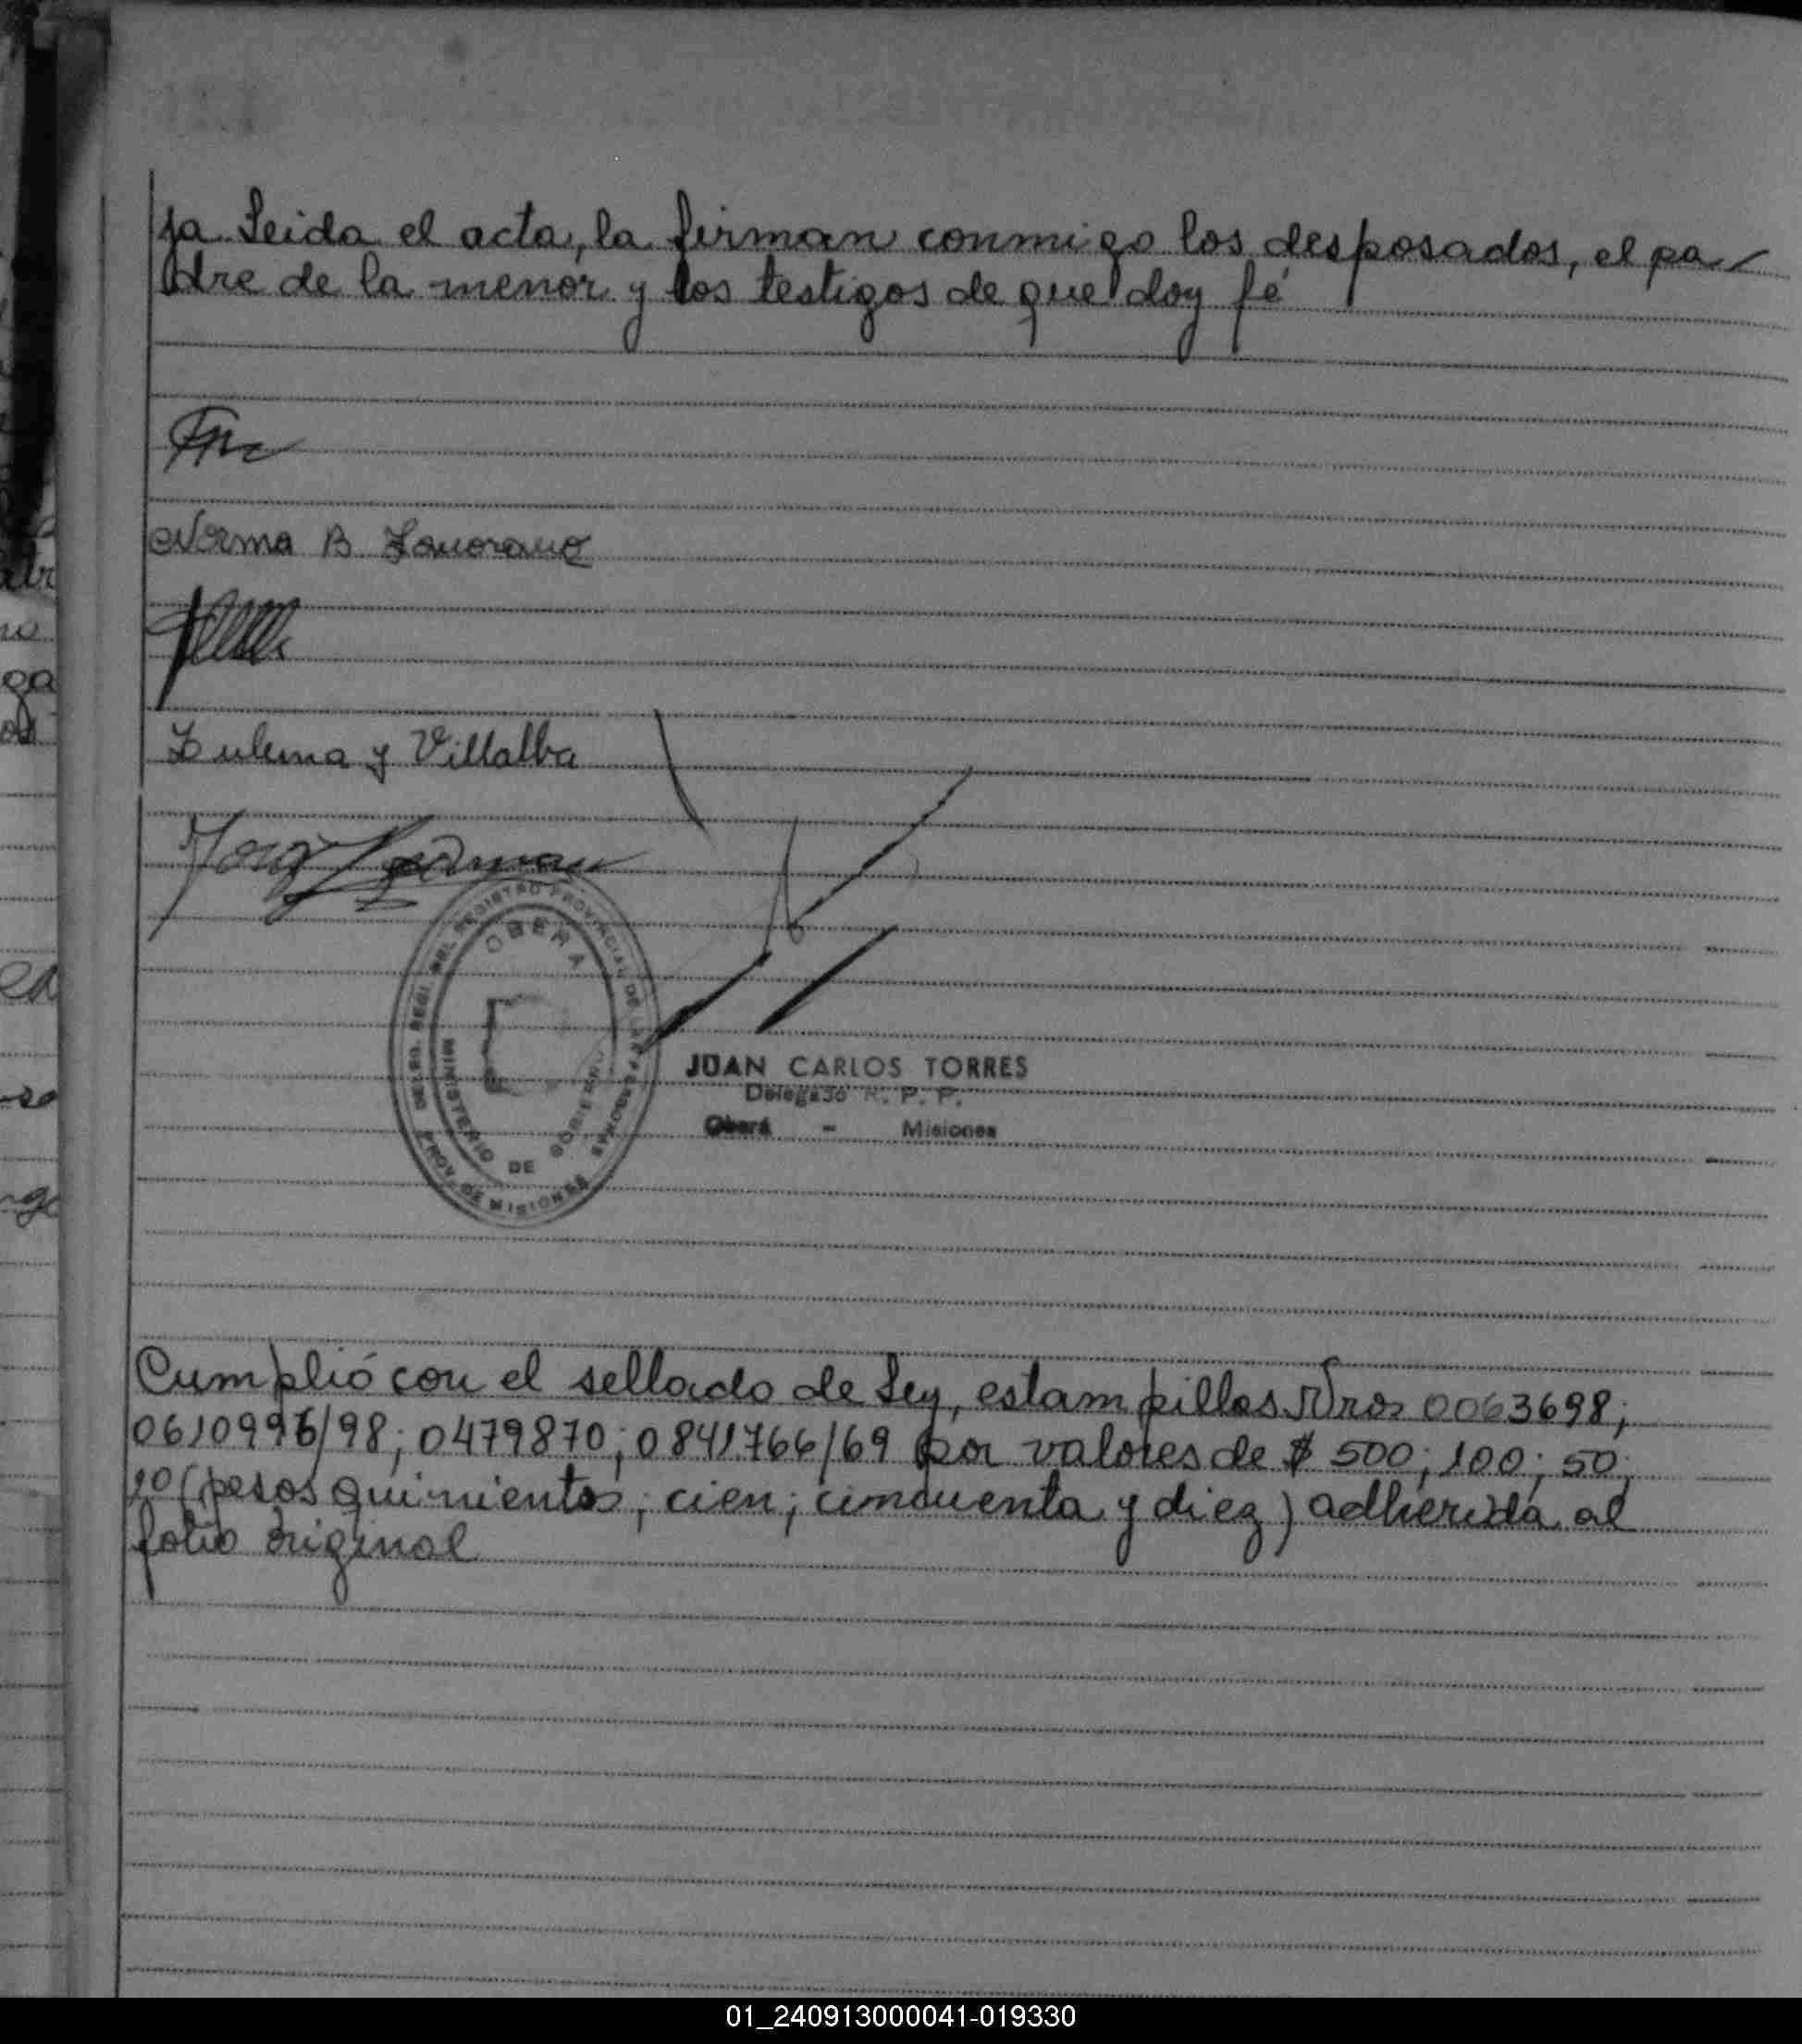 ja. Leida el acta, la firman conmigo los desposados, el pa-
dre de la menor y los testigos de que doy fé
Norma B.
Zulema Y Villalba
DELEG. REGI. DEL REGISTRO PROVINCIAL DE LAS PERSONAS
OBERA
MINISTERIO DE GOBIERNO
PROV. DE MISIONES
JUAN CARLOS TORRES
Delegado R. P. P.
Oberá - Misiones
Cumplió con el sellado de Ley, estampillas Nros 0063698;
0610996/98; 0479870; 0841766/69 por valores de $ 500; 100; 50;
10 (pesos quinientos; cien; cincuenta y diez) adherida al
folio original
01_240913000041-019330